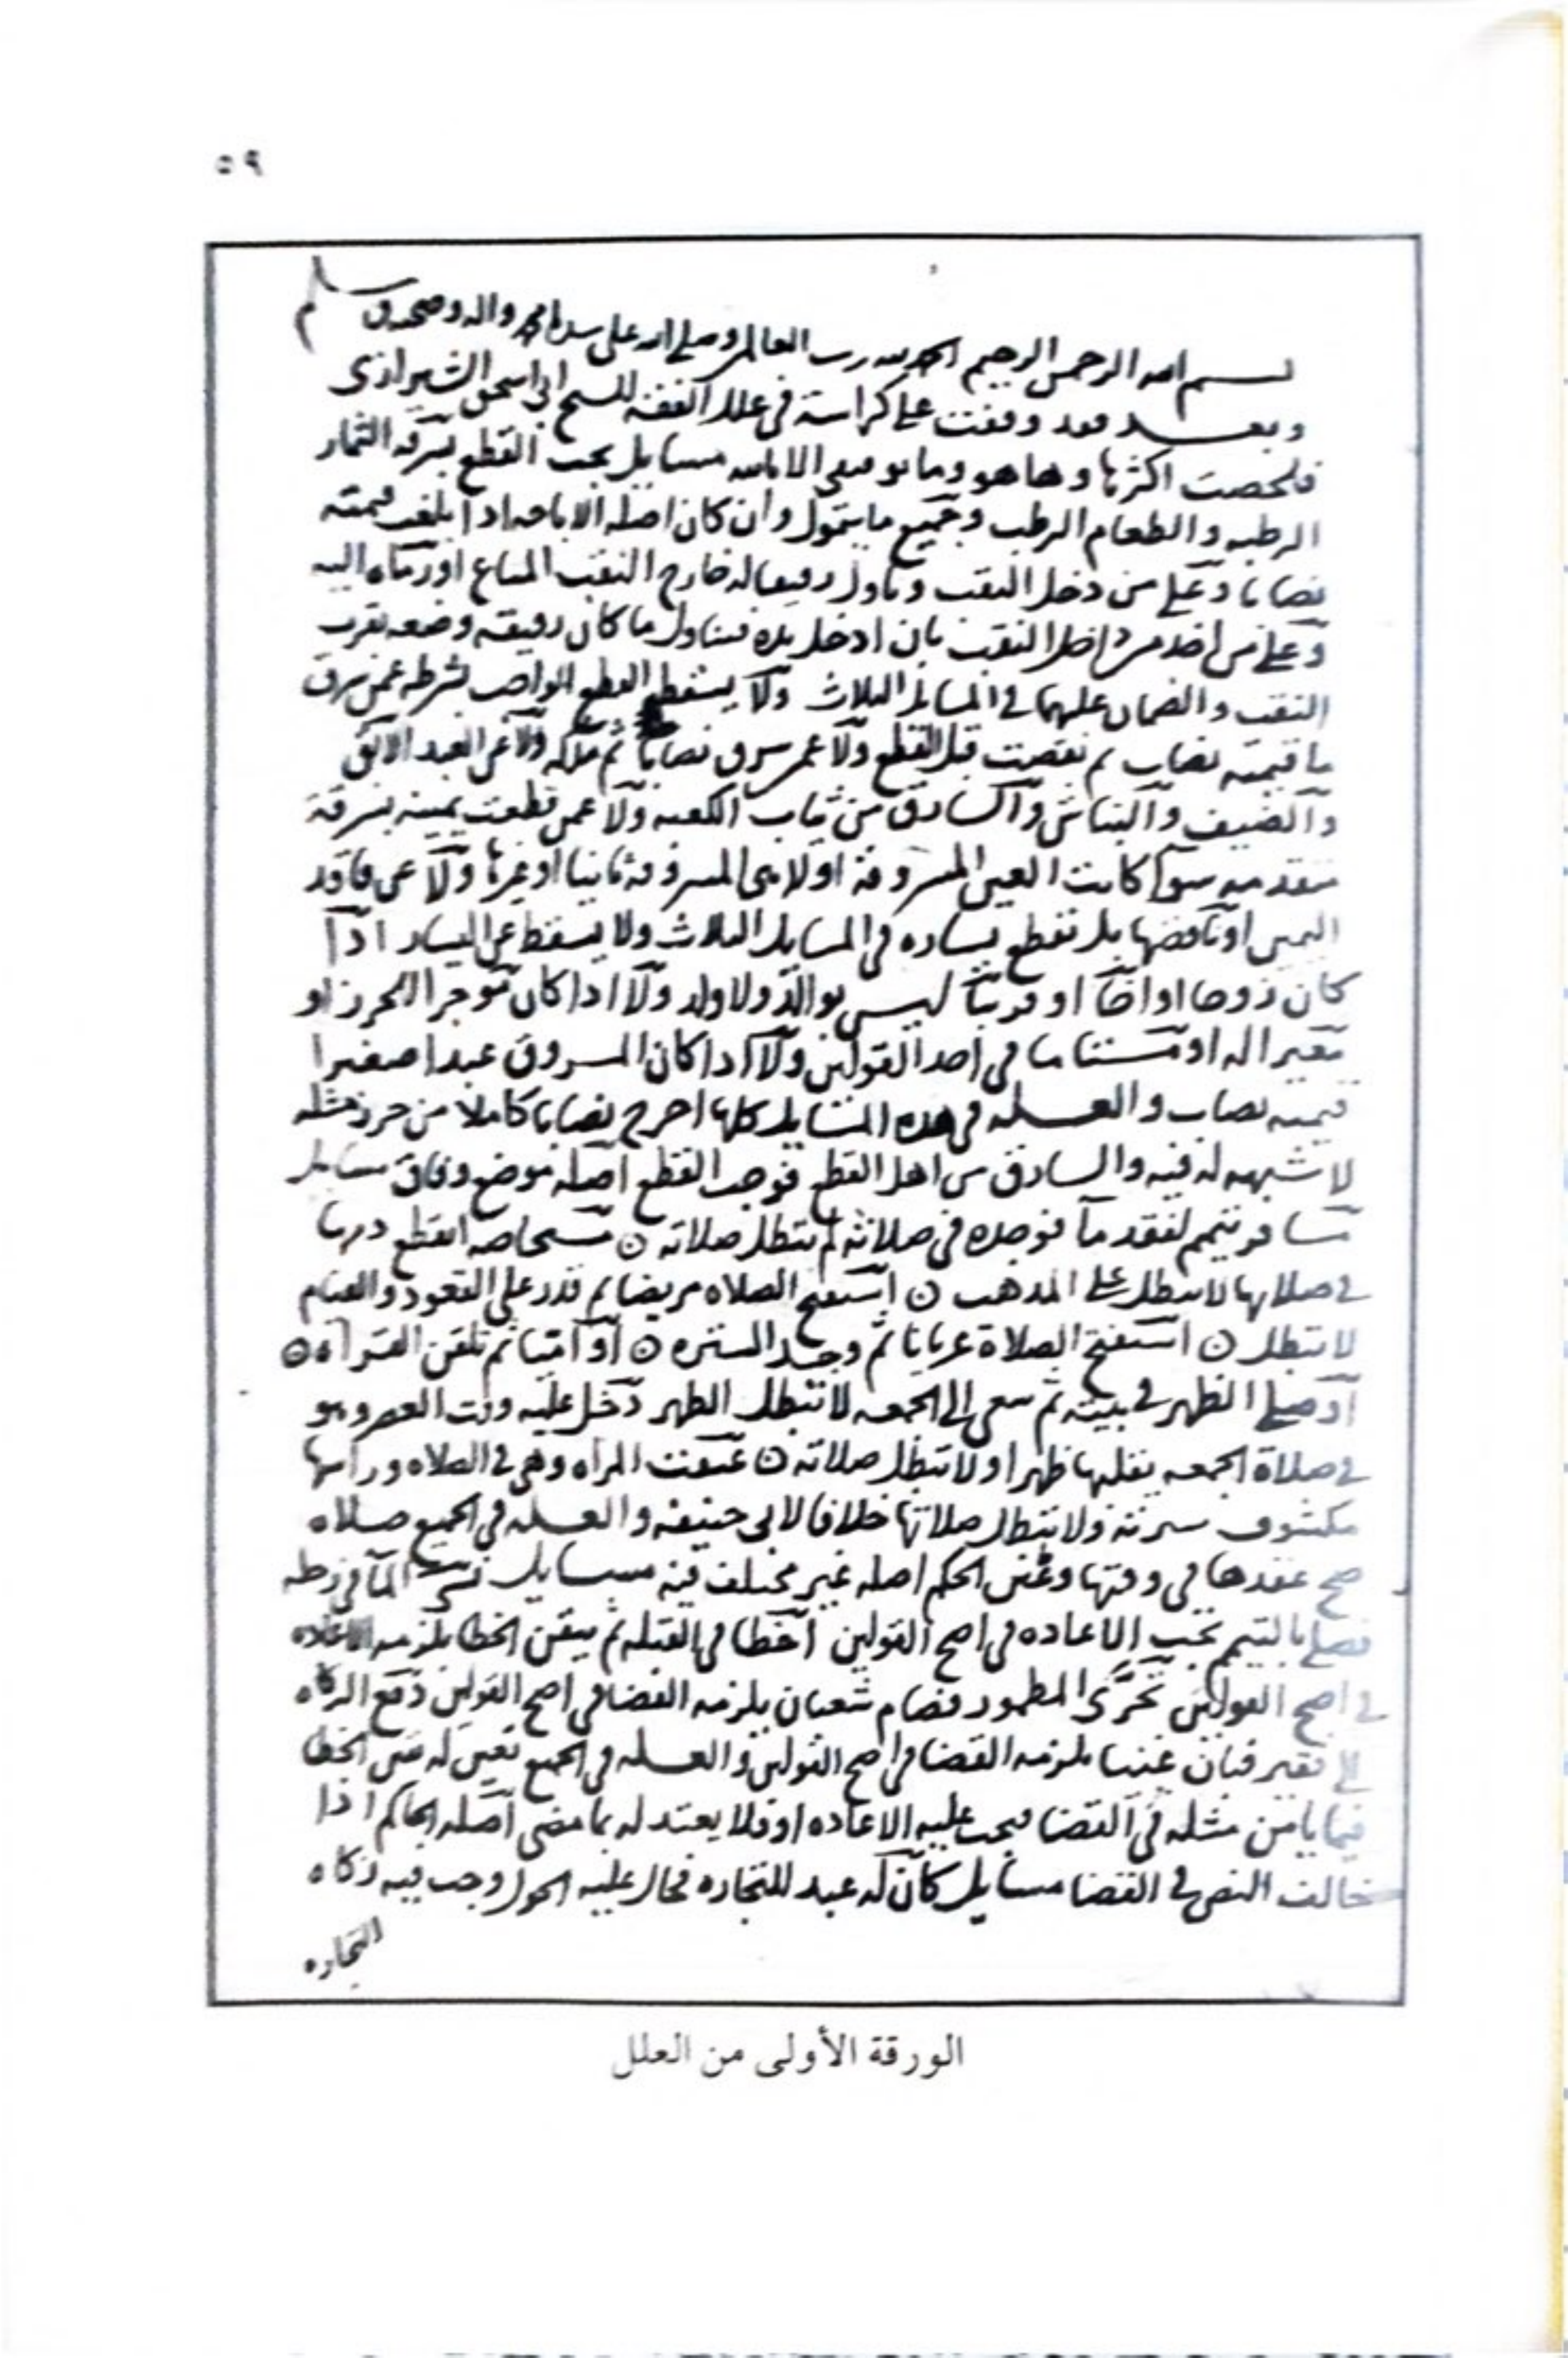 ٥٩
بسم الله الرحمن الرحيم الحمد لله رب العالمين وصلى الله على سيدنا محمد واله وصحبه وسلم
وبعد فقد وقفت على كراسة في علل الفقه للشيخ ابي اسحق الشيرازي
فلخصت اكثرها وها هو وما توفيقي الا بالله مسايل يجب القطع بسرقه الثمار
الرطبه والطعام الرطب وجميع ما يتمول وان كان اصله الاباحه اذا بلغت قيمته
نصابا وعلى من دخل النقب وناول رفيقا له خارج النقب المتاع او رماه اليه
وعلى من اخذ من داخل النقب بان ادخل يده فتناول ما كان رفيقه وضعه بقرب
النقب والضمان عليهما في المسايل الثلاث ولا يسقط القطع الواجب بشرطه عمن سرق
ما قيمته نصاب ثم نقصت قبل القطع ولا عمن سرق نصابا ثم ملكه ولا عن العبد الابق
والضيف والنباش والسارق من ثياب الكعبه ولا عمن قطعت يمينه بسرقة
متقدمه سوا كانت العين المسروقة اولا هي المسروقه ثانيا او غيرها ولا عن فاقد
اليمين او ناقصها بل تقطع يساره في المسايل الثلاث ولا يسقط عن السارق اذا
كان زوجا او اخا او قريبا ليس بوالد ولا ولد ولا اذا كان موجر الحرز او
معيرا له او مستامنا في احد القولين ولا اذا كان المسروق عبدا صغيرا
قيمته نصاب والعله في هذه المسايل كلها اخرج نصابا كاملا من حرز مثله
لا شبهه له فيه والسارق من اهل القطع فوجب القطع اصله موضع وفاق مسايل
مسافر تيمم لفقد ما فوجده في صلاته لم تبطل صلاته ۞ مستحاضه انقطع دمها
في صلاتها لا تبطل على المذهب ۞ استفتح الصلاه مريضا ثم قدر على القعود والقيام
لا تبطل ۞ استفتح الصلاة عريانا ثم وجد الستره ۞ او اميا ثم تلقن القراه ۞
او صلى الظهر في بيته ثم سعى الى الجمعه لا تبطل الظهر دخل عليه وقت العصر وهو
في صلاة الجمعه يقلبها ظهرا ولا تبطل صلاته ۞ عتقت المراه وهي في الصلاه وراسها
مكشوف سترته ولا تبطل صلاتها خلافا لابي حنيفه والعله في الجميع صلاه
صح عقدها في وقتها الحكم اصله غير مختلف فيه مسايل نسي الما في رحله
فصلى بالتيمم تجب الاعاده في اصح القولين اخطا في القبله ثم تيقن الخطا يلزمه الاعاده
في اصح القولين تحرى المطمور فصام شعبان يلزمه القضا في اصح القولين دفع الزكاه
الى فقير فبان غنيا يلزمه القضا في اصح القولين والعله في الجميع تعين له الخطا
فيما يامن مثله في القضا فيجب عليه الاعاده او فلا يعتد له بما مضى اصله الحاكم اذا
خالف النص في القضا مسايل كان له عبد للتجاره فحال عليه الحول وجب فيه زكاه
التجاره
الورقة الأولى من العلل